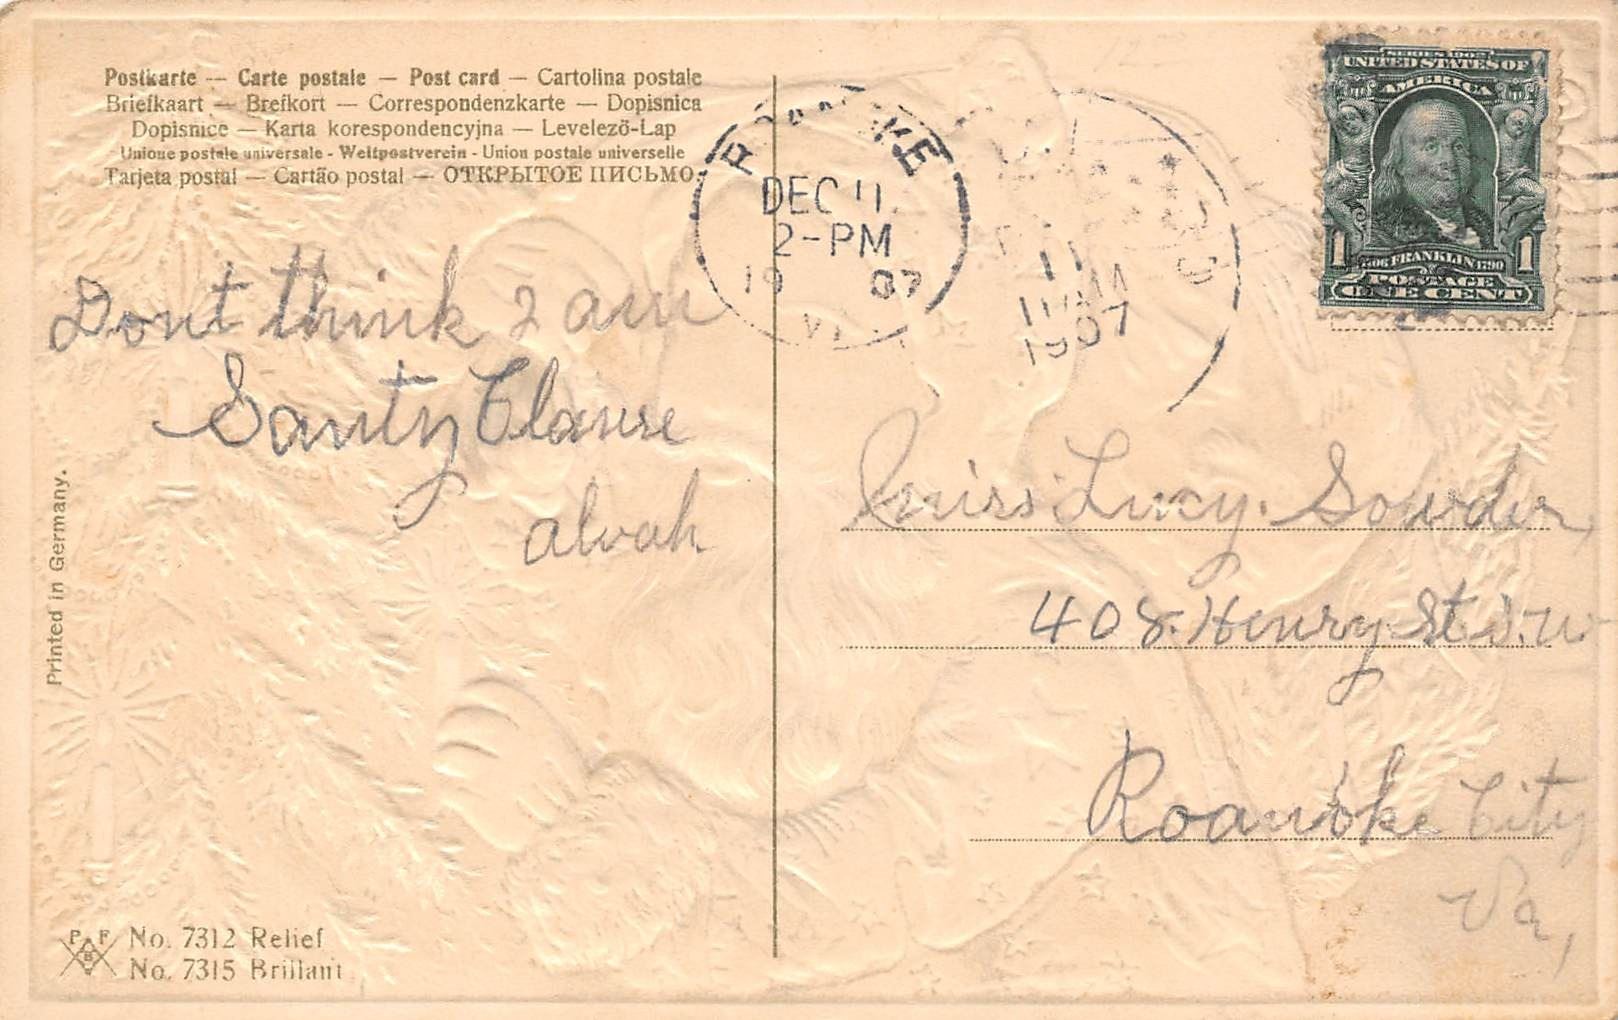 Postkarte — Carte postale — Post card — Cartolina postale
Briefkaart — Brefkort — Correspondenzkarte — Dopisnica
Dopisnice — Karta korespondencyjna — Levelező-Lap
Unione postale universale - Weltpostverein - Union postale universelle
Tarjeta postal — Cartão postal — ОТКРЫТОЕ ПИСЬМО.
ROANOKE
DEC 11
2-PM
1907
VA
11
11 AM
1907
SERIES 1902
UNITED STATES OF
AMERICA
1706 FRANKLIN 1790
1 1
POSTAGE
ONE CENT
Dont think I am
Santy Clause
alvah
Miss Lucy. Sowder,
408. Henry St S.W
Roanoke City
Va,
Printed in Germany.
P F
B
No. 7312 Relief
No. 7315 Brillant